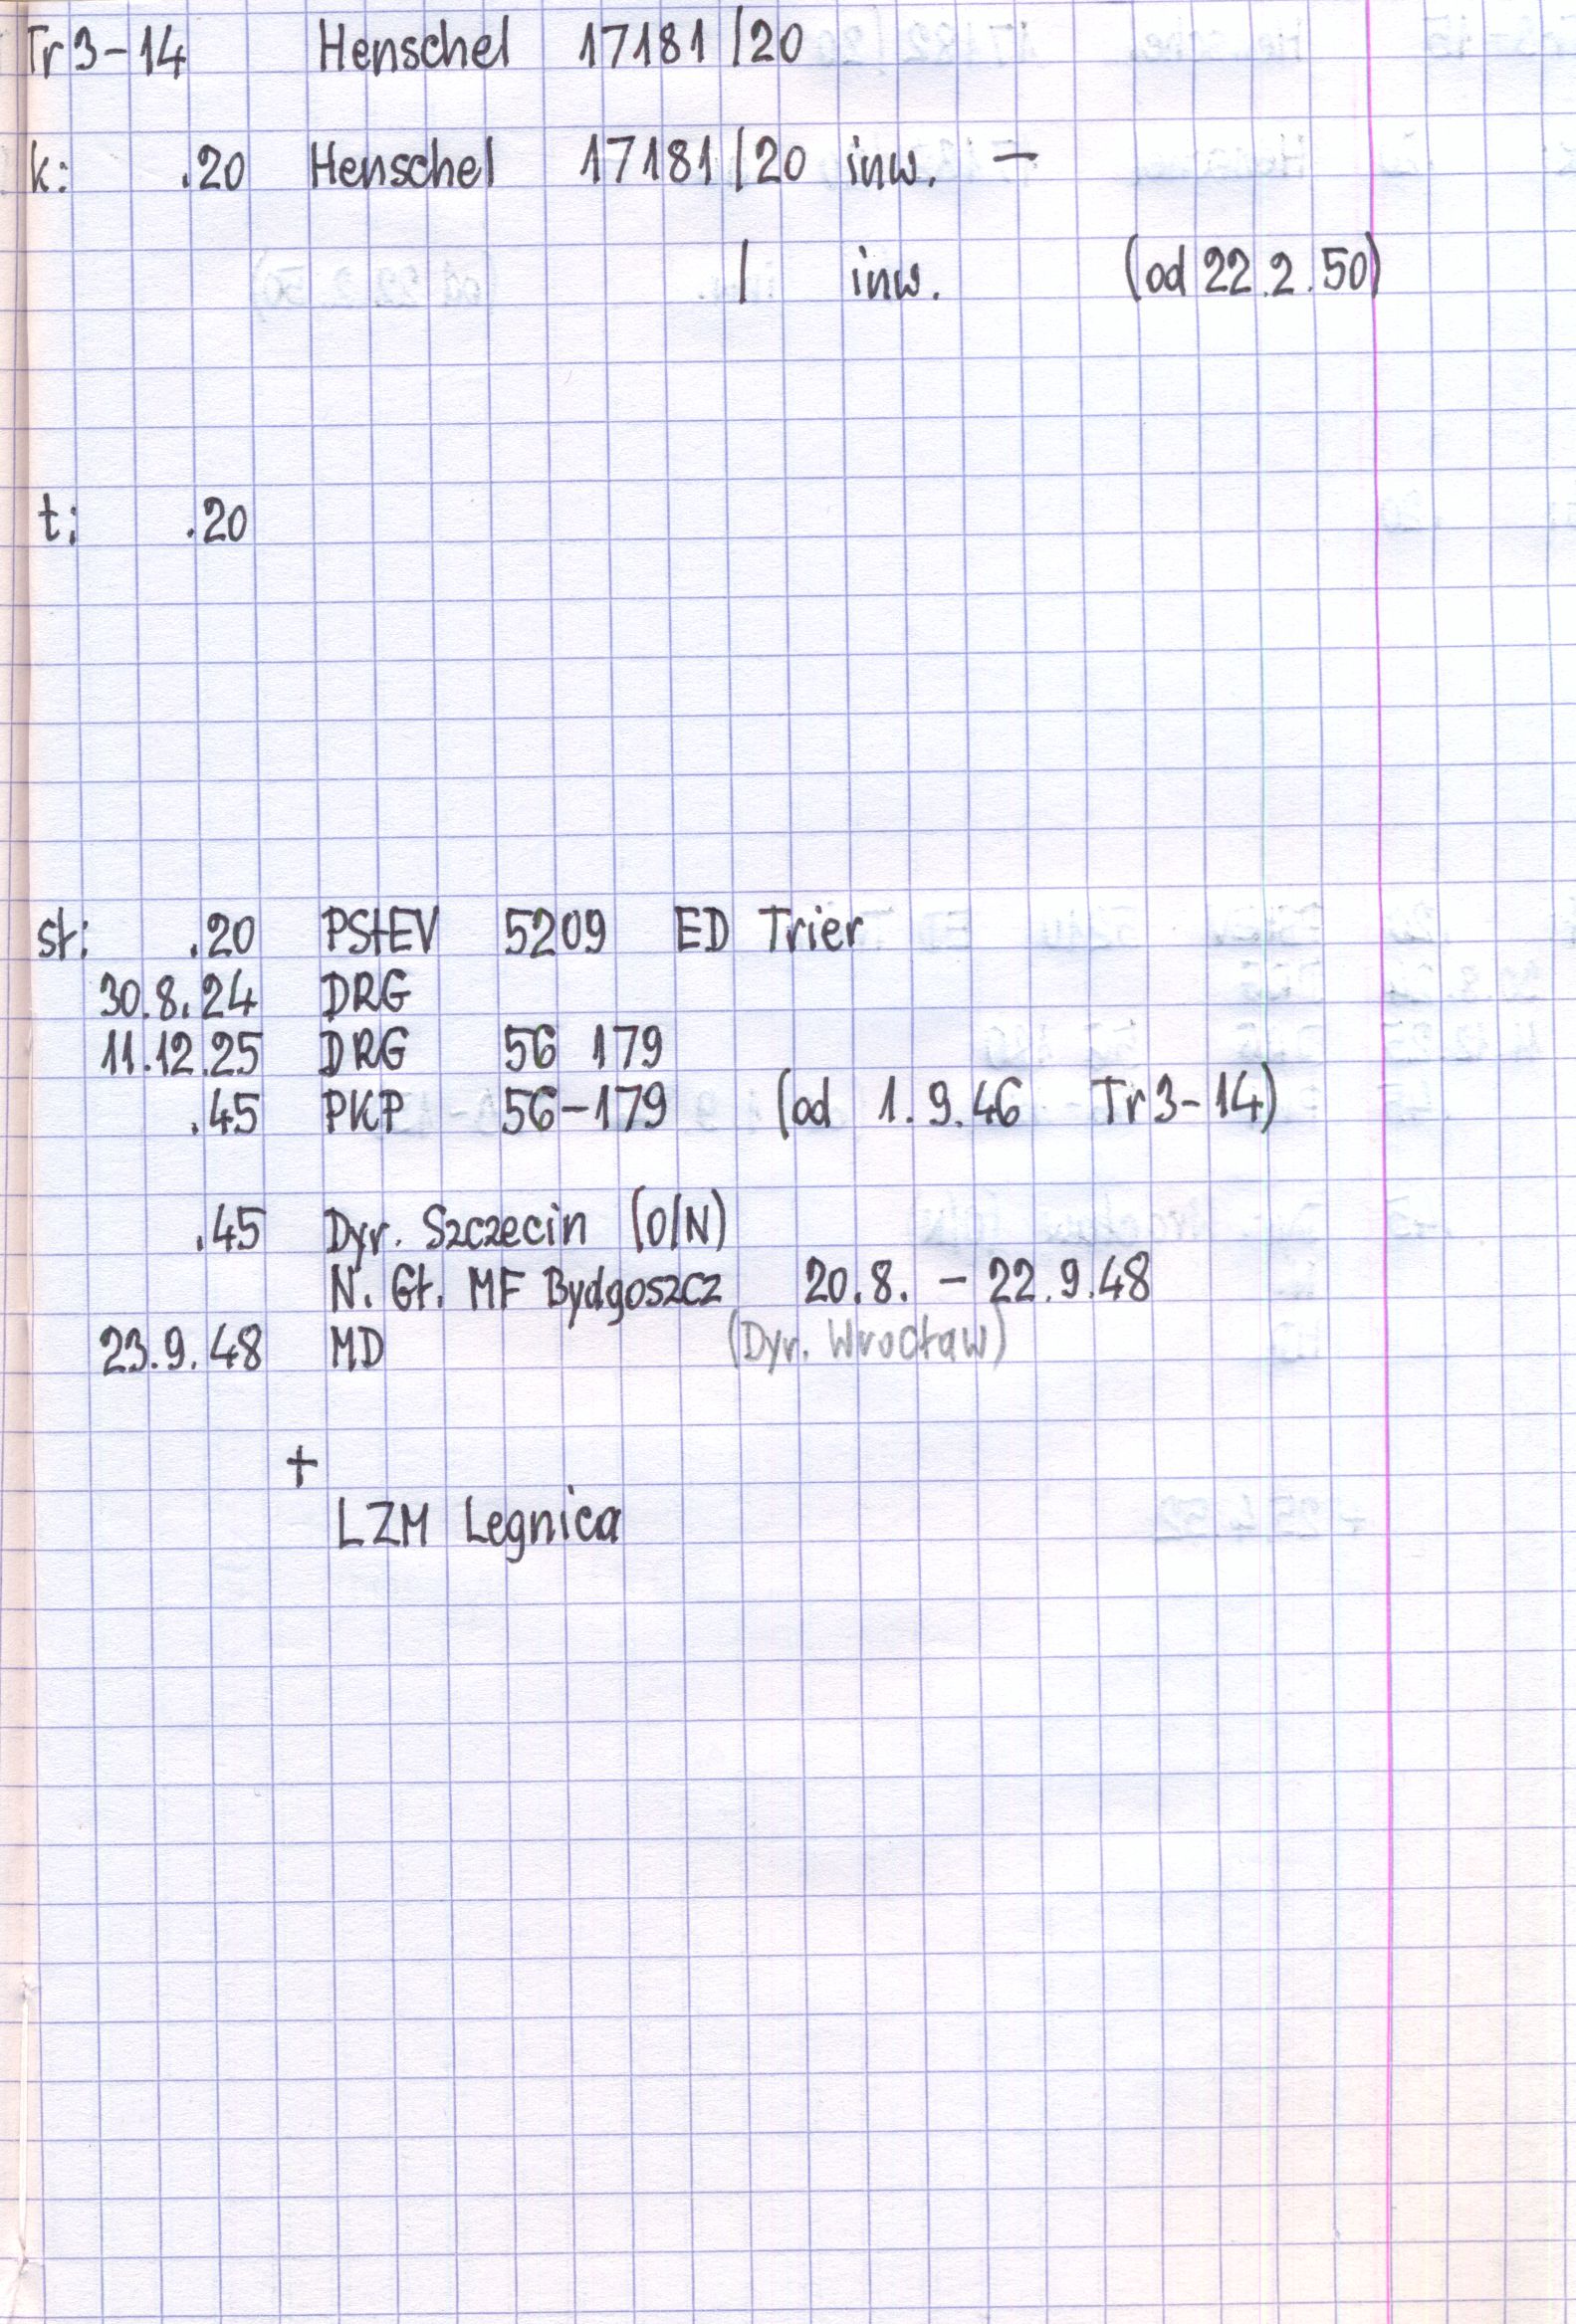 Tr 3-14 Henschel 17181/20
k: .20 Henschel 17181/20 inw. —
/ inw. (od 22.2.50)
t: .20
st: .20 PStEV 5209 ED Trier
30.8.24 DRG
11.12.25 DRG 56 179
.45 PKP 56-179 (od 1.9.46 Tr 3-14)
.45 Dyr. Szczecin (O/N)
N. Gł. MF Bydgoszcz 20.8. - 22.9.48
23.9.48 MD (Dyr. Wrocław)
+
LZM Legnica